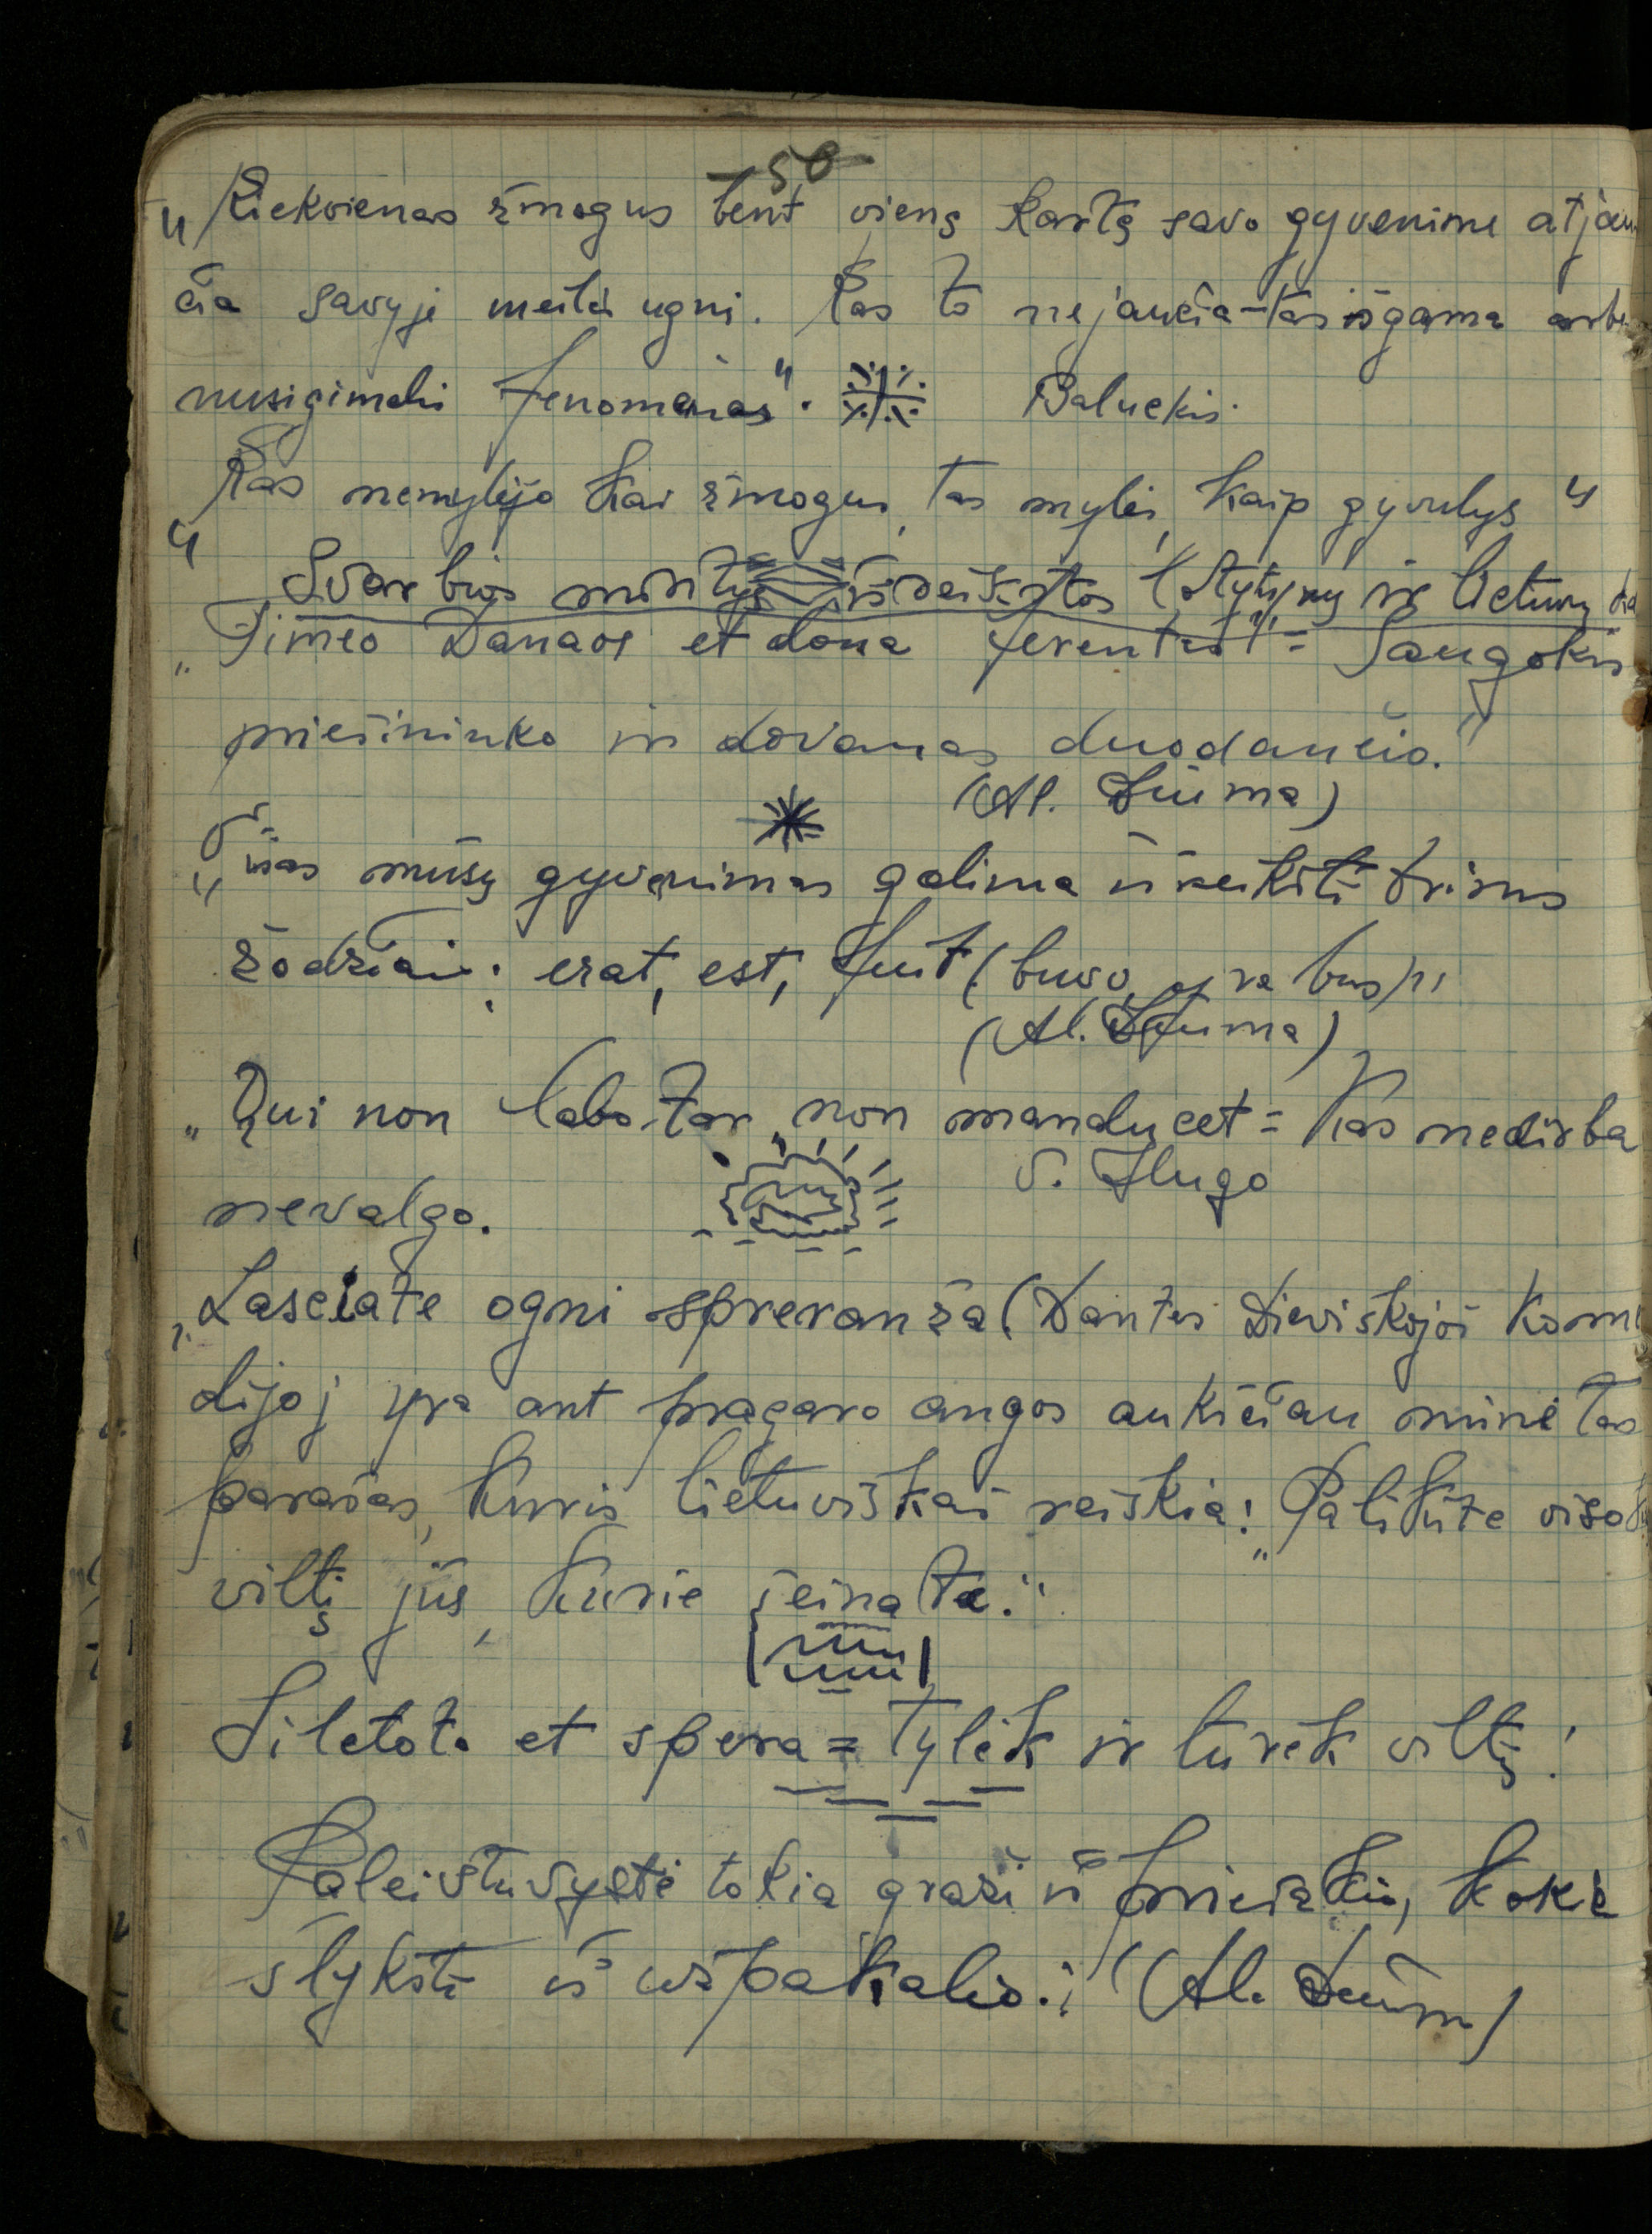 50
„Kiekvienas žmogus bent vieną kartą savo gyvenime atjau
čia savyje meilės ugnį. Kas to nejaučia - tas išgama arba
nusigimęlis fenomenas“. Baluckis.
„Kas nemylėjo kai žmogus, tas mylės, kaip gyvulys“
Svarbios mintys išreikštos lotynų ir lietuvių
„Timeo Danaos et dona ferentes“ = Saugokis
priešininko ir dovanas duodančio.“
(Al. Diuma)
„Visas mūsų gyvenimas galima išreikšti trims
žodžiais: erat, est, fuit (buvo, yra bus)“
(Al. Diuma)
„Qui non labotar non manducet = Kas nedirba
V. Hugo
nevalgo.
„Lasciate ogni spreranža (Dantės Dieviškojoi Kome
dijoj yra ant pragaro angos aukščiau minėtas
parašas, kuris lietuviškai reiškia: „Palikite viso
viltį jūs, kurie įeinate.“
Siletoto et spera = Tylėk ir turėk viltį!
Paleistuvystė tokia graži iš priešakio, kokia
šlykšti iš užpakalio.“ (Al. Dium)